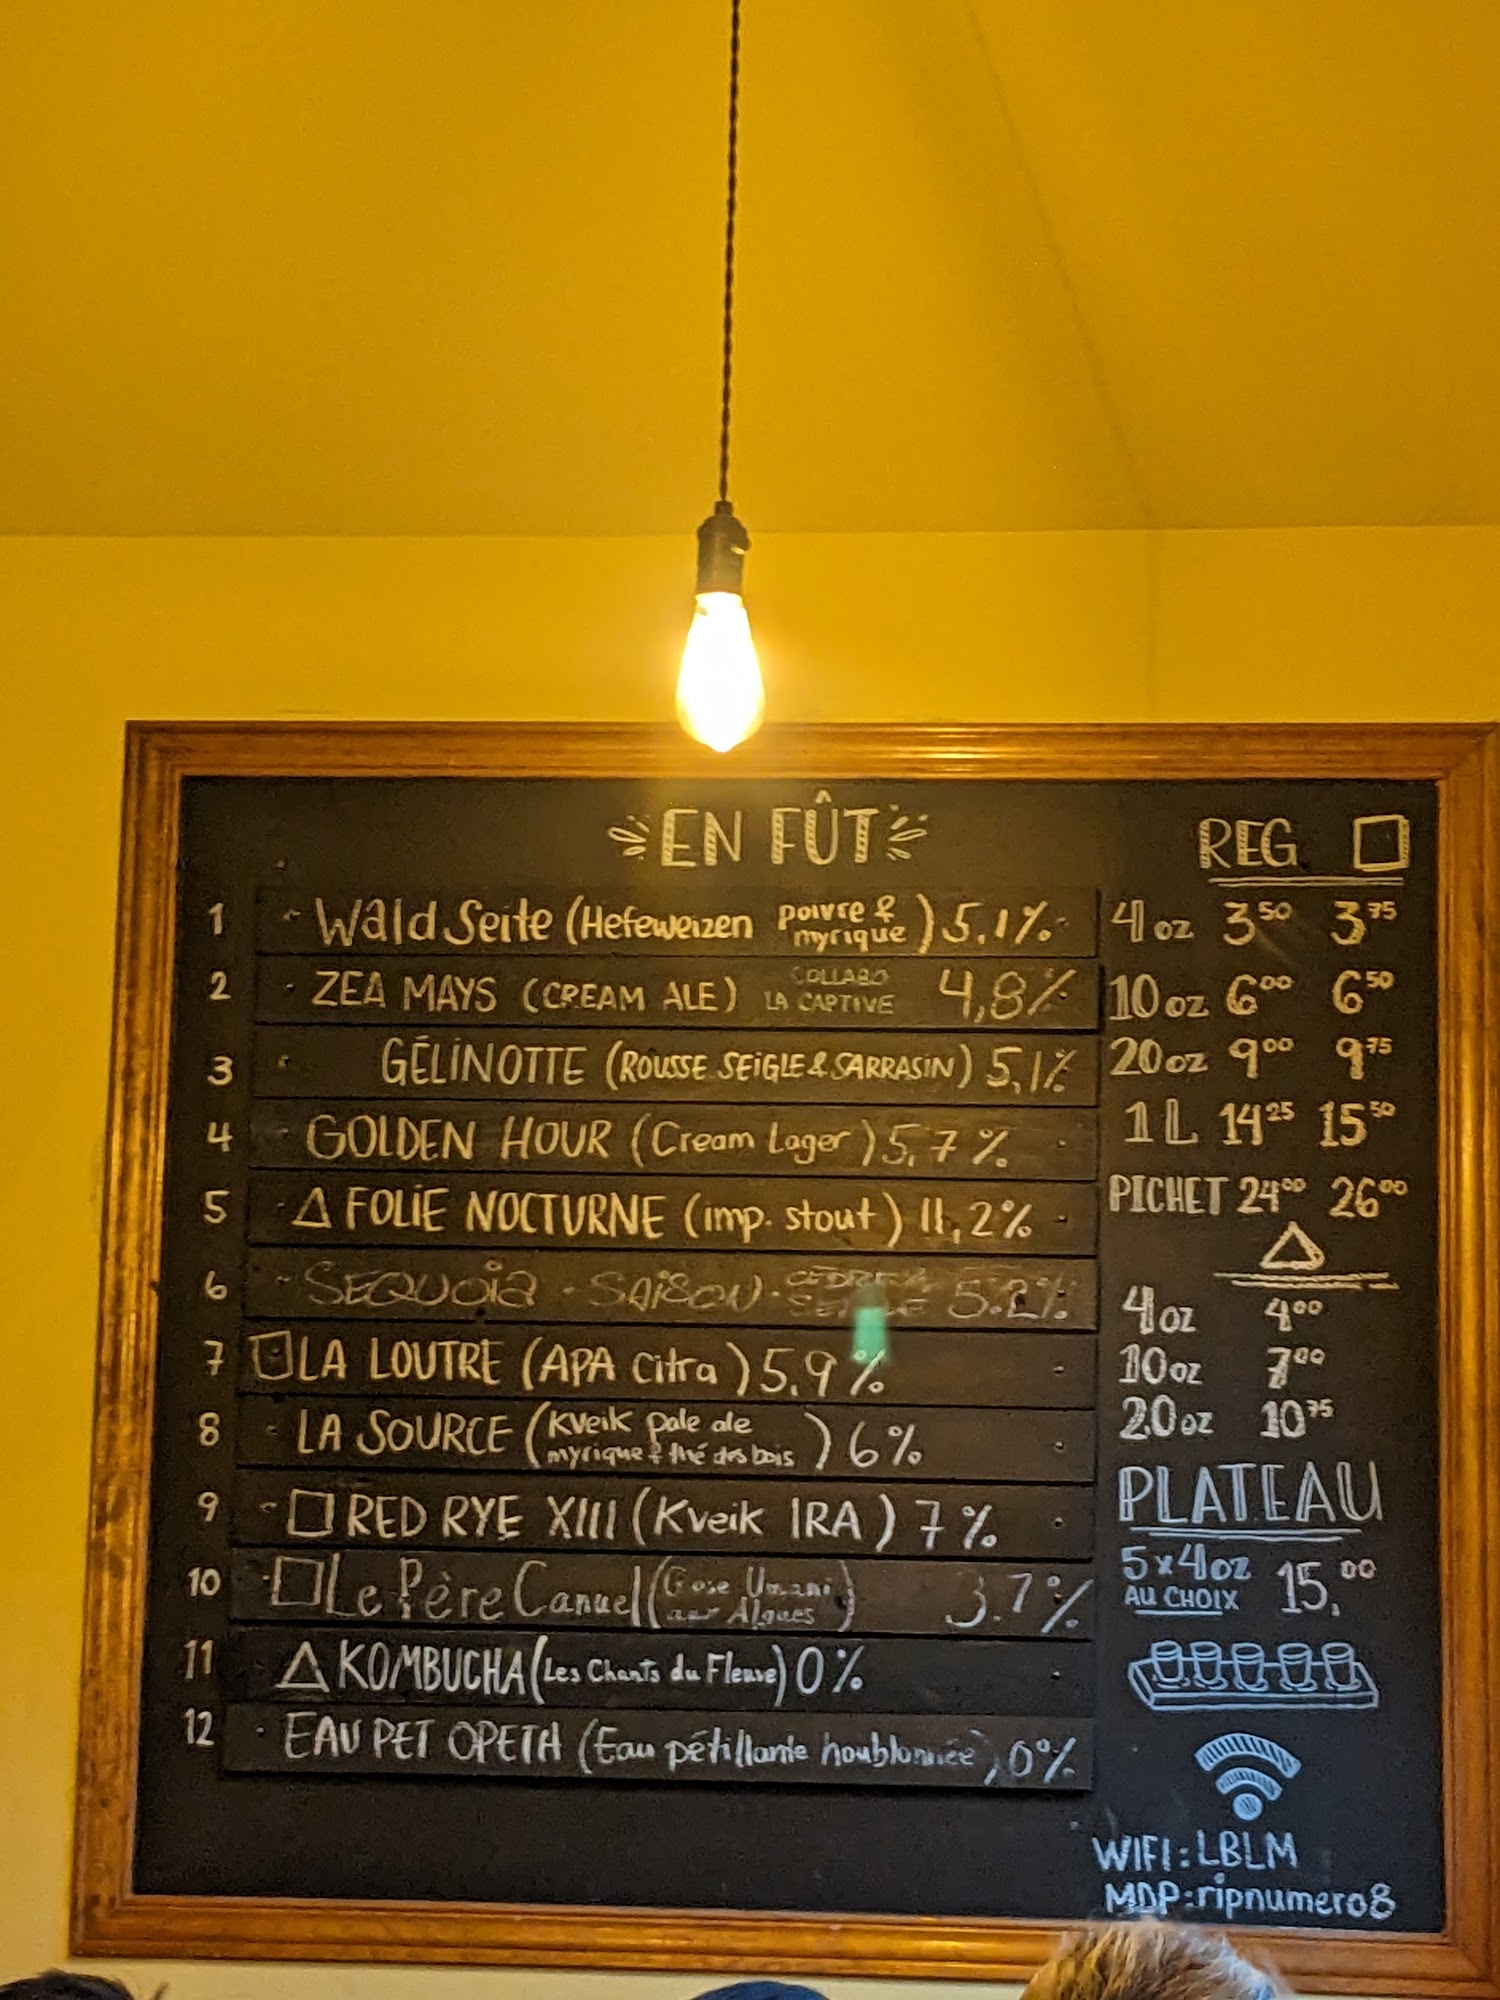 EN FÛT
1 Wald Seite (Hefeweizen poivre & myrique) 5.1%
2 ZEA MAYS (CREAM ALE) COLLABO LA CAPTIVE 4,8%
3 GÉLINOTTE (ROUSSE SEIGLE & SARRASIN) 5,1%
4 GOLDEN HOUR (Cream Lager) 5,7%
5 △ FOLIE NOCTURNE (imp. stout) 11,2%
6 SEQUOIA - SAISON - 5.2%
7 □ LA LOUTRE (APA Citra) 5,9%
8 LA SOURCE (Kveik pale ale myrique & thé des bois) 6%
9 □ RED RYE XIII (Kveik IRA) 7%
10 □ Le Père Canuel (Gose Umami aux Algues) 3.7%
11 △ KOMBUCHA (Les Chants du Fleuve) 0%
12 EAU PET OPETH (Eau pétillante houblonnée) 0%
REG □
4oz 3.50 3.75
10oz 6.00 6.50
20oz 9.00 9.75
1L 14.25 15.50
PICHET 24.00 26.00
△
4oz 4.00
10oz 7.00
20oz 10.75
PLATEAU
5x4oz 15,00
AU CHOIX
WIFI: LBLM
MDP: ripnumero8